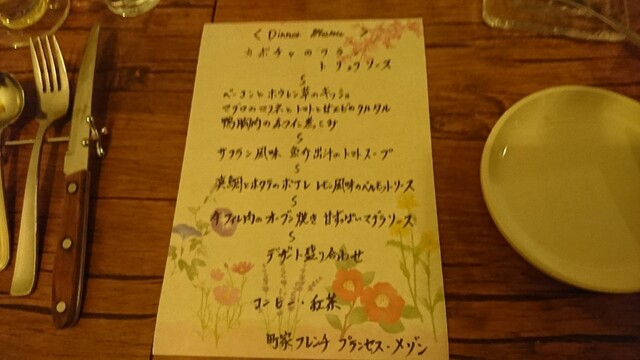 < Dinner Menu >
カボチャのフラン
トリュフソース
S
ベーコンとホウレン草のキッシュ
マグロのマリネとトマトと甘エビのタルタル
鴨胸肉の赤ワイン煮こみ
S
サフラン風味 魚介出汁のトマトスープ
S
真鯛とホタテのポワレ レモン風味のベルモットソース
S
牛フィレ肉のオーブン焼き 甘ずっぱいマデラソース
S
デザート盛り合わせ
コーヒー・紅茶
町家フレンチ プランセス・メゾン